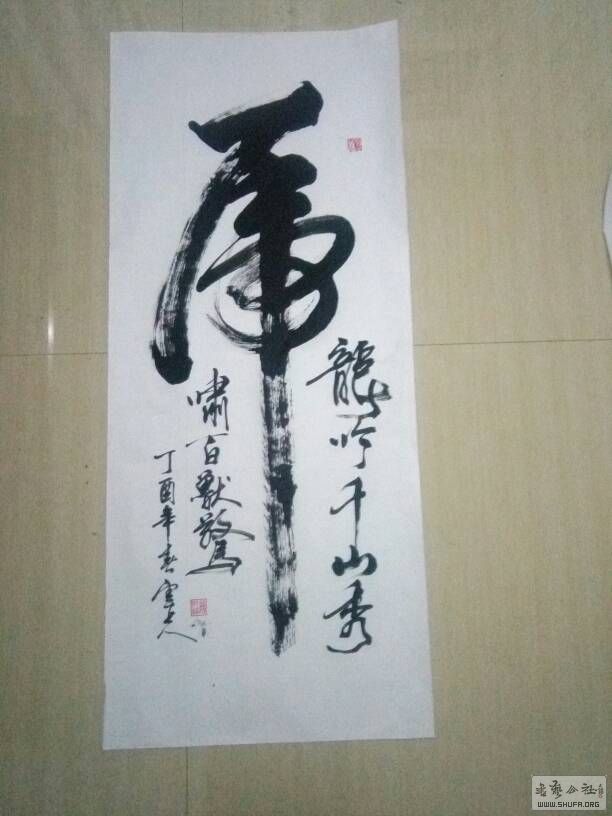 龍吟千山秀
虎
嘯百獸驚
丁酉年春
書藝公社
WWW.SHUFA.ORG